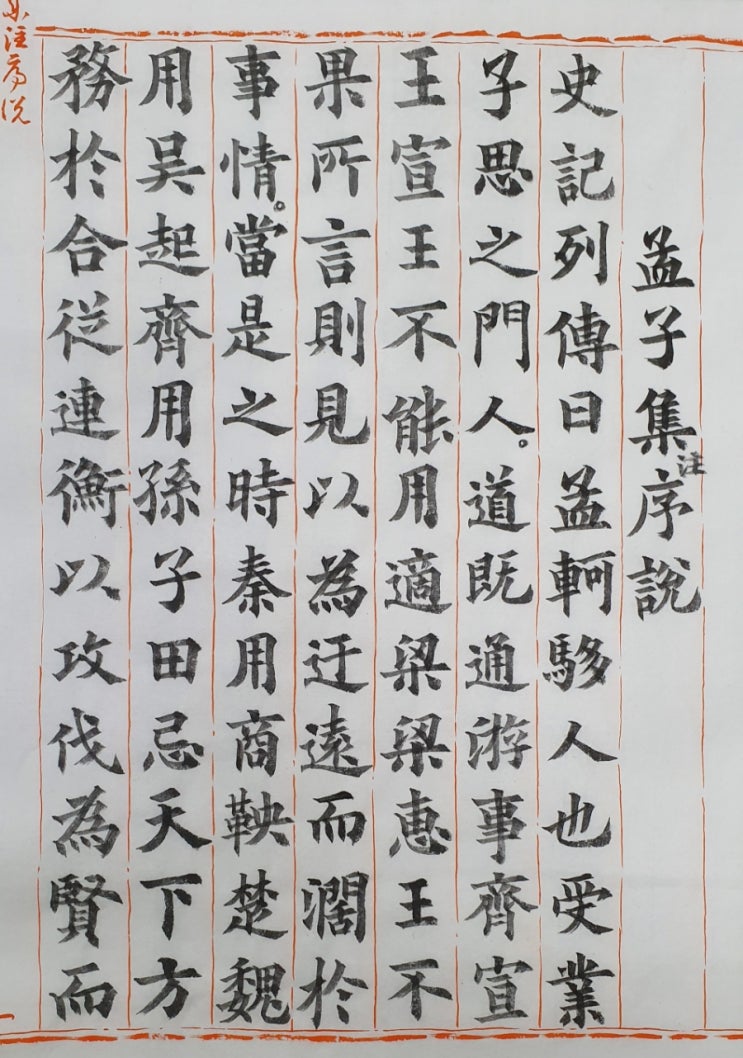 孟子集注序說
史記列傳曰孟軻騶人也受業
子思之門人。道既通游事齊宣
王宣王不能用適梁梁惠王不
果所言則見以為迂遠而濶於
事情。當是之時秦用商鞅楚魏
用吴起齊用孫子田忌天下方
務於合從連衡以攻伐為賢而
注序說